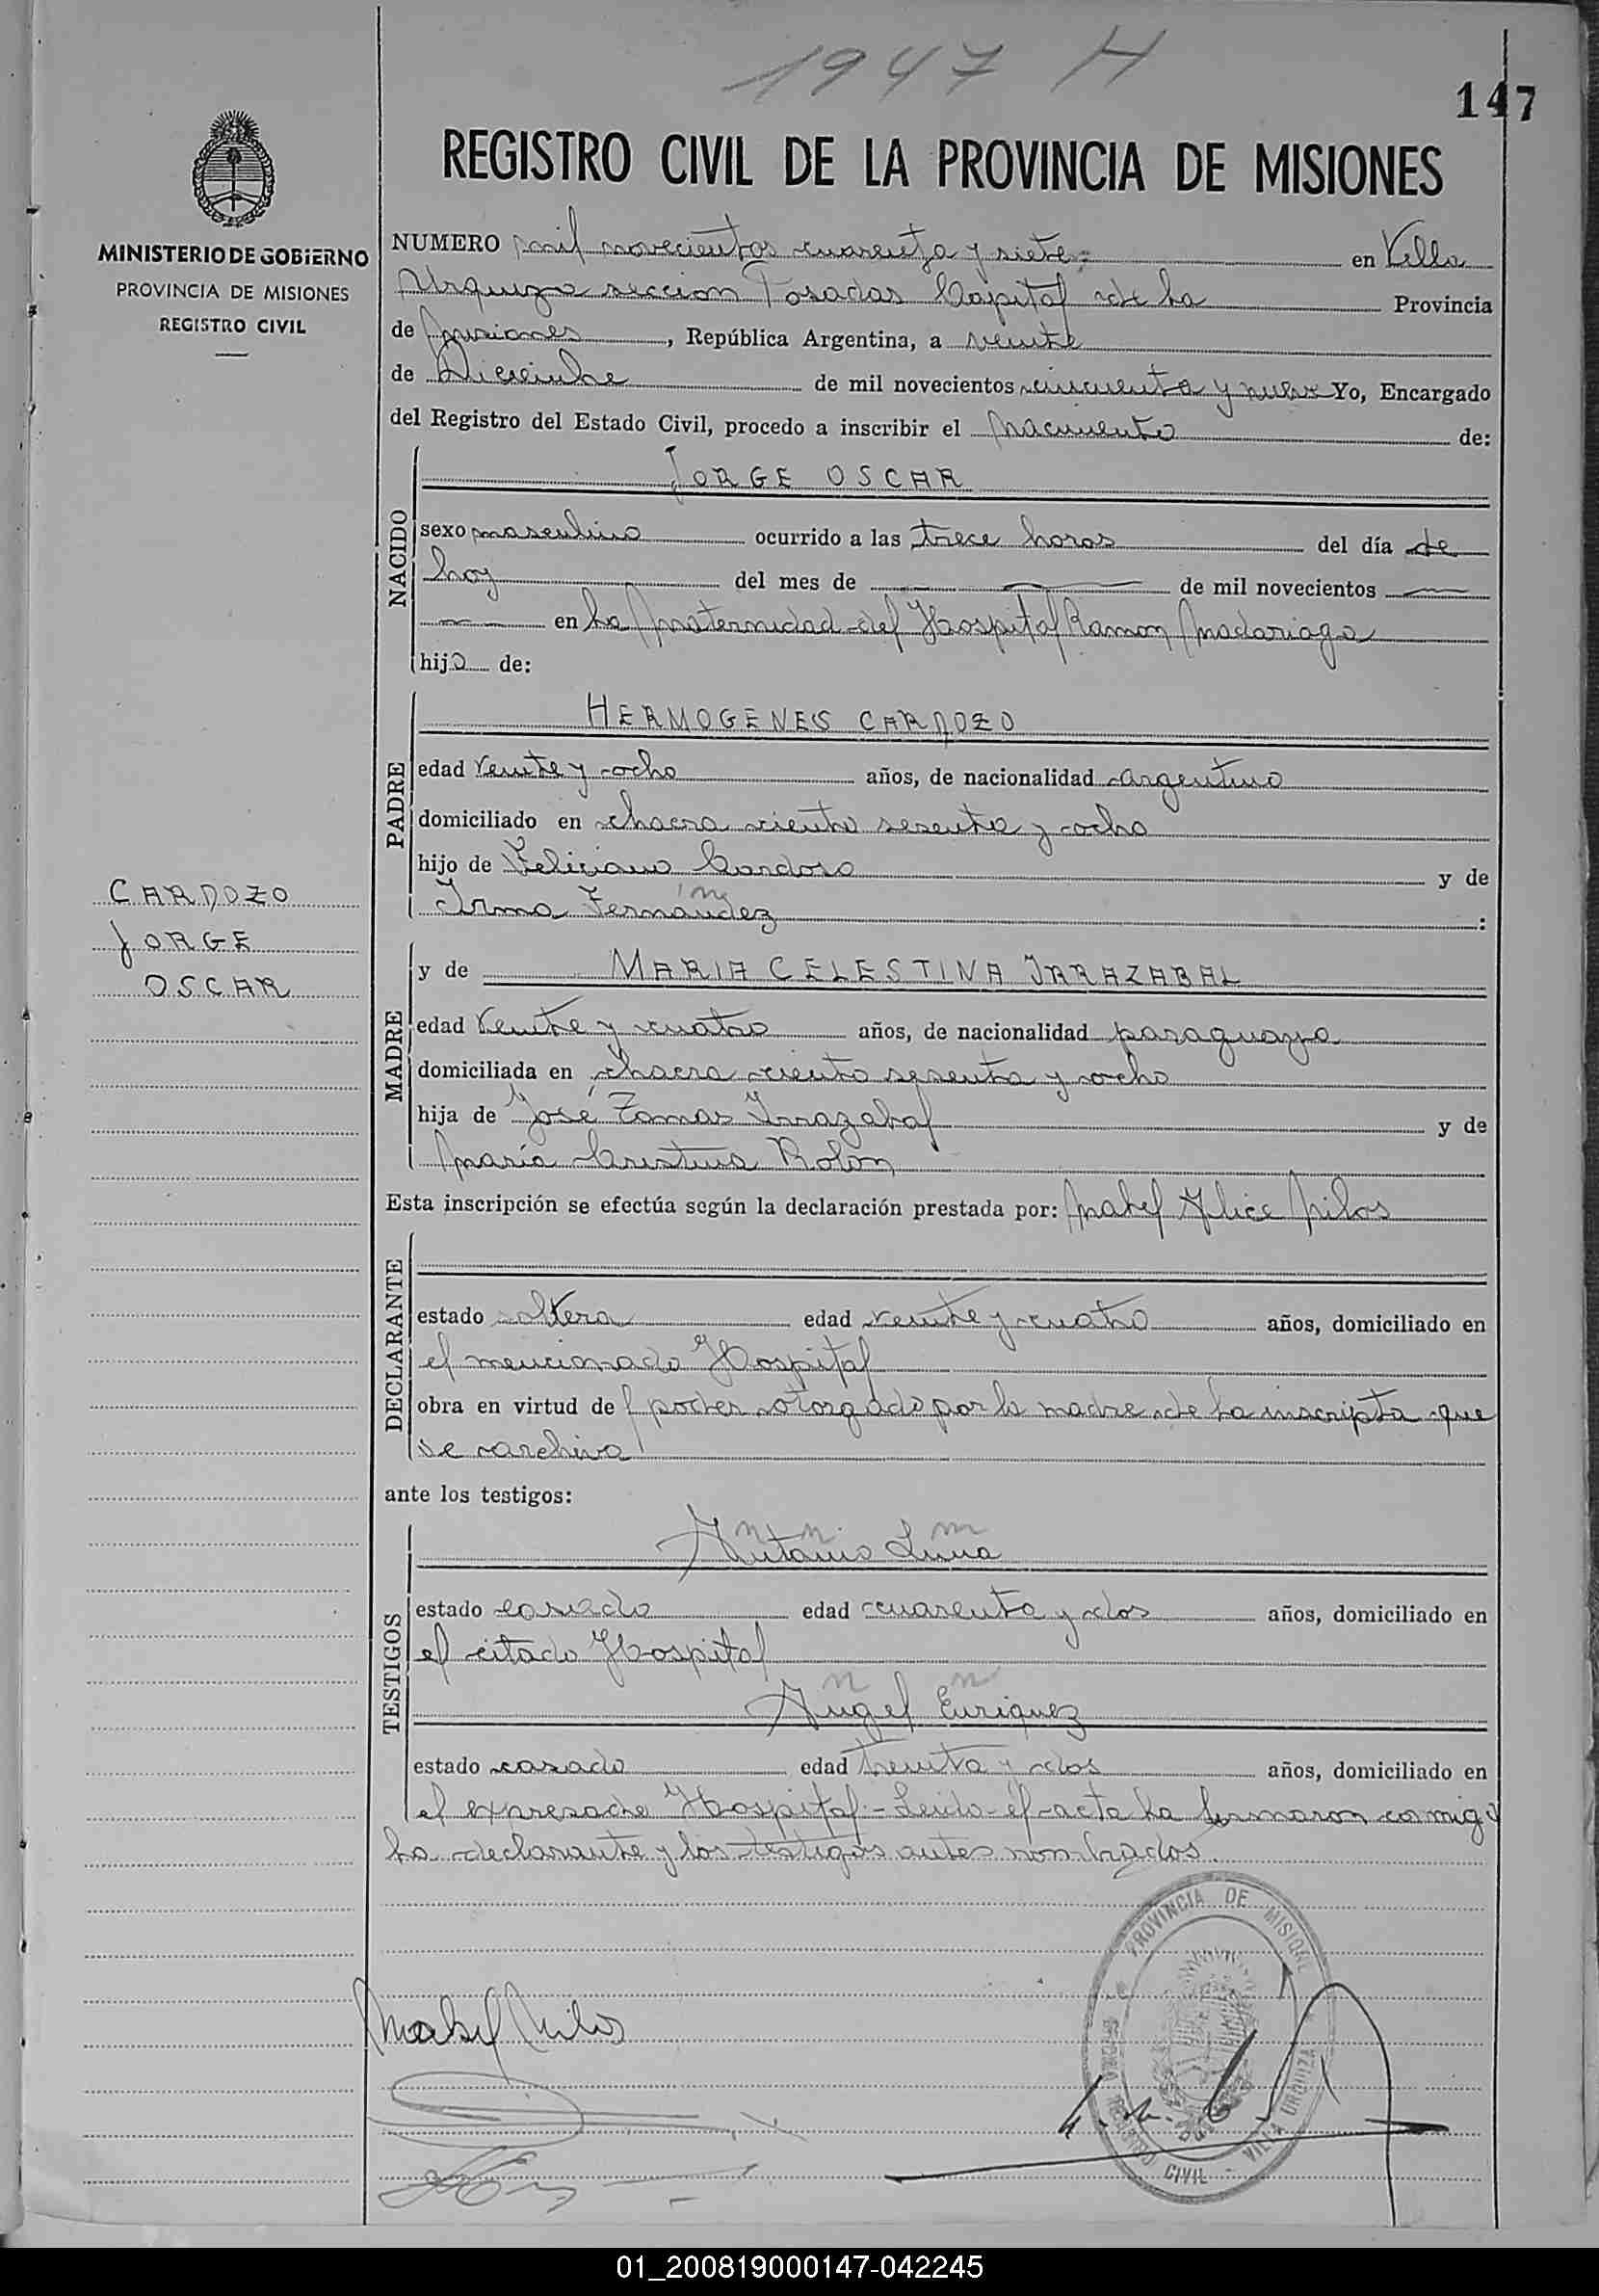 1947 H
147
REGISTRO CIVIL DE LA PROVINCIA DE MISIONES
MINISTERIO DE GOBIERNO
PROVINCIA DE MISIONES
REGISTRO CIVIL
NUMERO mil novecientos cuarenta y siete- en Villa
Urquiza seccion Posadas Capital de la Provincia
de Misiones, República Argentina, a veinte
de Diciembre de mil novecientos cincuenta y nueve Yo, Encargado
del Registro del Estado Civil, procedo a inscribir el nacimiento de:
NACIDO
JORGE OSCAR
sexo masculino ocurrido a las trece horas del día de
hoy del mes de — de mil novecientos —
— en la Maternidad del Hospital Ramon Madariaga
hijo de:
PADRE
HERMOGENES CARDOZO
edad veinte y ocho años, de nacionalidad argentino
domiciliado en chacra ciento sesenta y ocho
hijo de Feliciano Cardoso y de
Irma Fernandez :
CARDOZO
JORGE
OSCAR
MADRE
y de MARIA CELESTINA IRRAZABAL
edad veinte y cuatro años, de nacionalidad paraguaya
domiciliada en chacra ciento sesenta y ocho
hija de José Tomas Irrazabal y de
María Cristina Rolon
Esta inscripción se efectúa según la declaración prestada por: Mabel Alice Milos
DECLARANTE
estado soltera edad veinte y cuatro años, domiciliado en
el mencionado Hospital
obra en virtud de poder otorgado por la madre de la inscripta que
se archiva
ante los testigos:
TESTIGOS
Antonio Luna
estado casado edad cuarenta y dos años, domiciliado en
el citado Hospital
Angel Enriquez
estado casado edad treinta y dos años, domiciliado en
el expresado Hospital - Leida el acta la firmaron conmigo
la declarante y los testigos antes nombrados.
Mabel Milos
PROVINCIA DE MISIONES
REGISTRO CIVIL - VILLA URQUIZA
01_200819000147-042245